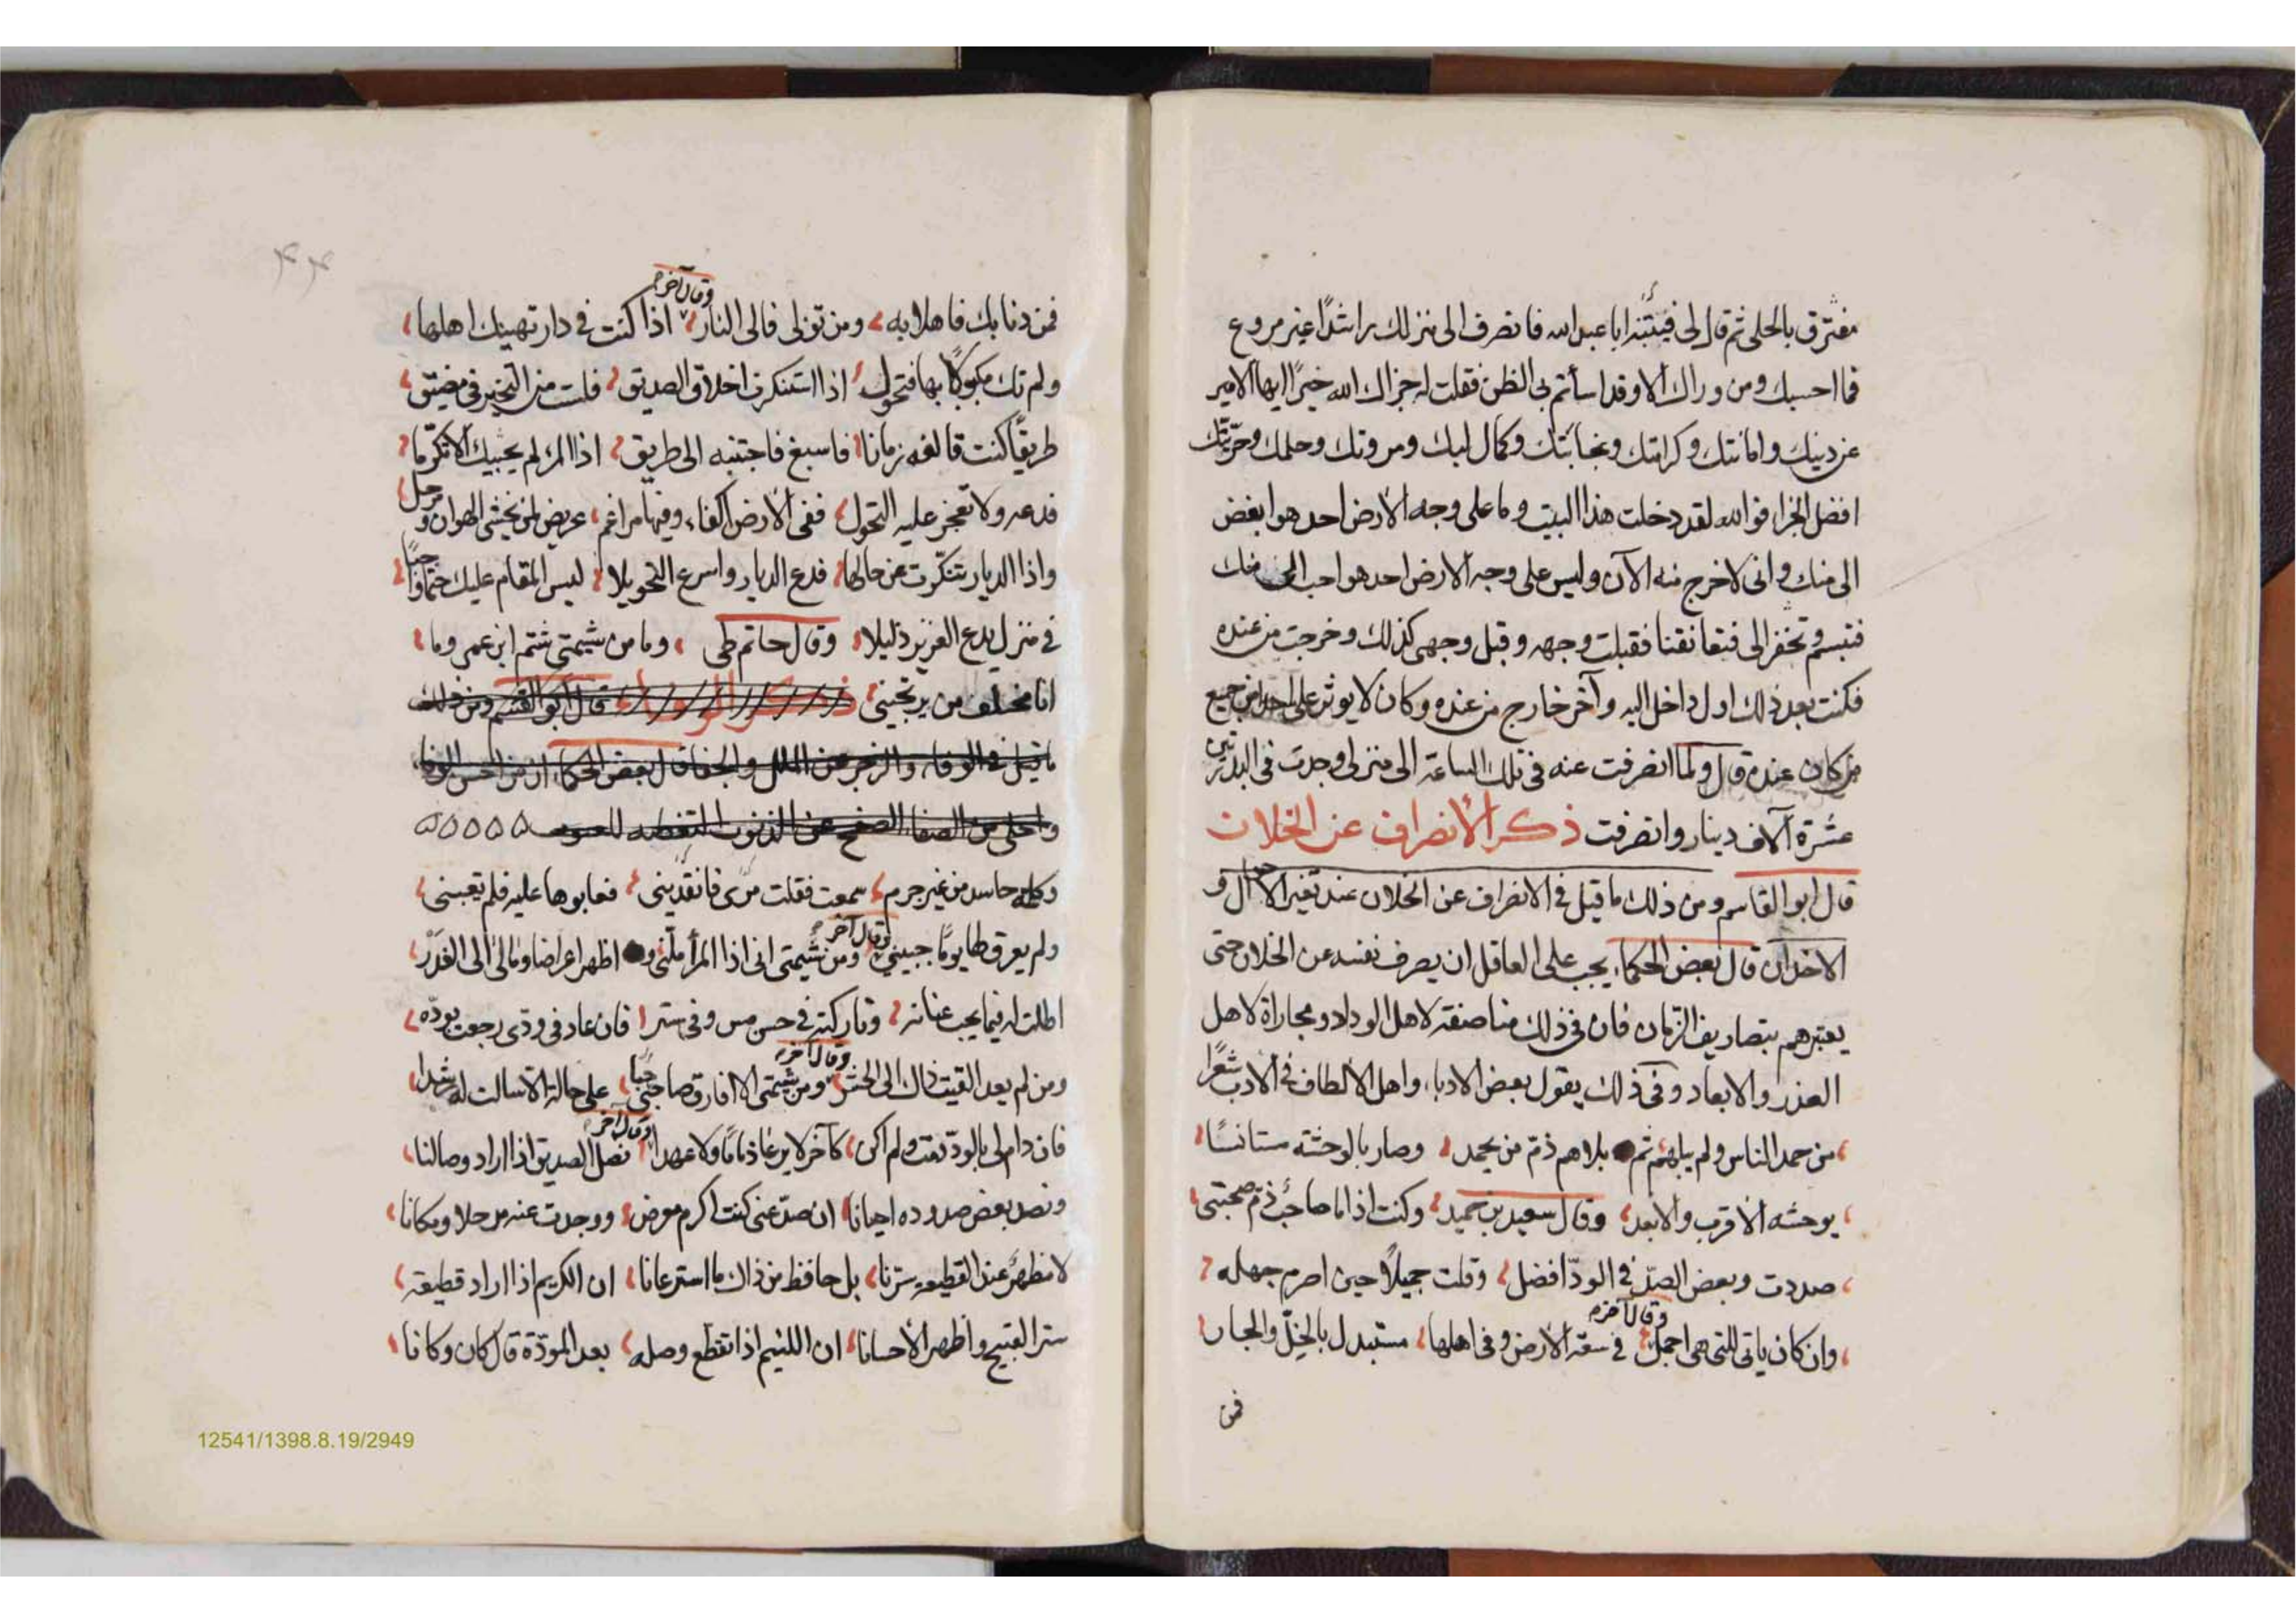 مفترق بالحلى ثم قال لى فيتئنه اباعبد الله فانصرف الى منزلك راشدًا غير مروع
فما احسبك ومن وراك الا وقد اسأتم بى الظن فقلت له جزاك الله خيرًا ايها الامير
عن دينك وامانتك وكرامتك ونجابتك وكمال لبك ومروتك وحلمك وحرّيتك
افضل الجزاء فوالله لقد دخلت هذا البيت وما على وجه الأرض احد هو ابغض
الى منك وانى لاخرج منه الآن وليس على وجه الارض احد هو احب الى منك
فتبسم وتحفز الى فتعانقنا فقبلت وجهه وقبل وجهى كذلك وخرجت من عنده
فكنت بعد ذلك اول داخل اليه وآخر خارج من عنده وكان لا يوثر على احدا من جميع
من كان عنده قال ولما انصرفت عنه فى تلك الساعة الى منزلى وجدت فى البدرتين
عشرة آلاف دينار وانصرفت ذكر الأنصراف عن الخلان
قال ابو القاسم ومن ذلك ما قيل فى الانصراف عن الخلان عند تغير الاحوال و
الاخدان قال بعض الحكماء يجب على العاقل ان يصرف نفسه عن الخلان حتى
يعتبرهم بتصاريف الزمان فان فى ذلك مناصفة لاهل الوداد ومجاراة لاهل
الغدر والابعاد وفى ذلك يقول بعض الادباء واهل الألطاف فى الأدب شعرًا
من حمد الناس ولم يبلهم ثم بلاهم ذمّ من يحمد وصار بالوحشة مستانسًا
يوحشه الأقرب والابعد وقال سعيد بن حميد وكنت اذا ما صاحب ذمّ صحبتى
صددت وبعض الصدّ فى الودّ افضل وقلت جميلًا حين اصرم جهله
وان كان ياتى للتى هى اجمل وقال آخره فى سعة الأرض وفى اهلها مستبدل بالخلّ والجار
فمن
۴۴
فمن دنا بك فاهلا به ومن تولى فالى النار وقال آخره اذا كنت فى دار تهينك اهلها
ولم تك مكبوكًا بها فتحول اذا استنكرت اخلاق الصديق فلست من التخير فى مضيق
طريقًا كنت تالفه زمانا فاسبغ فاجتنبه الى طريق اذا المرء لم يحببك الا تكرّما
فدعه ولا تعجز عليه التحول ففى الأرض اكفاء وفيها مراغم عريض لمن يخشى الهوان ومرحل
واذا الديار تنكّرت عن حالها فدع الديار واسرع التحويلا ليس المقام عليك حتمًا واجبًا
فى منزل يدع العزيز ذليلا وقال حاتم طى وما من شيمتى شتم ابن عمى وما
انا مخلف من يرتجينى ذكر الوفاء قال ابو القسم ومن ذلك
ما قيل فى الوفاء والزجر عن الملل والجفا قال بعض الحكماء ان من احسن الوفاء
واحلى من الصفاء الصفح عن الذنوب التغطيه للعيوب ۵۵۵۵۵
وكلمة حاسد من غير جرم سمعت فقلت مرّى فانقدينى فعابوها عليه فلم تعبنى
ولم يعرق لها يومًا جبينى وقال آخره ومن شيمتى انى اذا المرأ ملّنى واظهر اعراضا ومال الى الغدر
اطلت له فيما يحب عنانه وتاركته فى حسن مس وفى ستر فان عاد فى ودى رجعت بودّه
ومن لم يعد القيت ذاك الى الحشر وقال آخره ومن شيمتى الا افارق صاحبى على حالة الا سالت له رشدا
فان دام لى بالودّ دمت ولم اكن كآخر لا يرعا ذمامًا ولا عهدا وقال آخره نصل الصديق اذا اراد وصالنا
ونصد بعض صدوده احيانا ان صدّ عنى كنت اكرم معرض ووجدت عنه مرحلا ومكانا
لا مظهر عند القطيعة سترنا بل حافظ من ذاك ما استرعانا ان الكريم اذا اراد قطيعة
ستر القبيح واظهر الأحسانا ان اللئيم اذا تقطع وصله بعد المودّة قال كان وكانا
12541/1398.8.19/2949